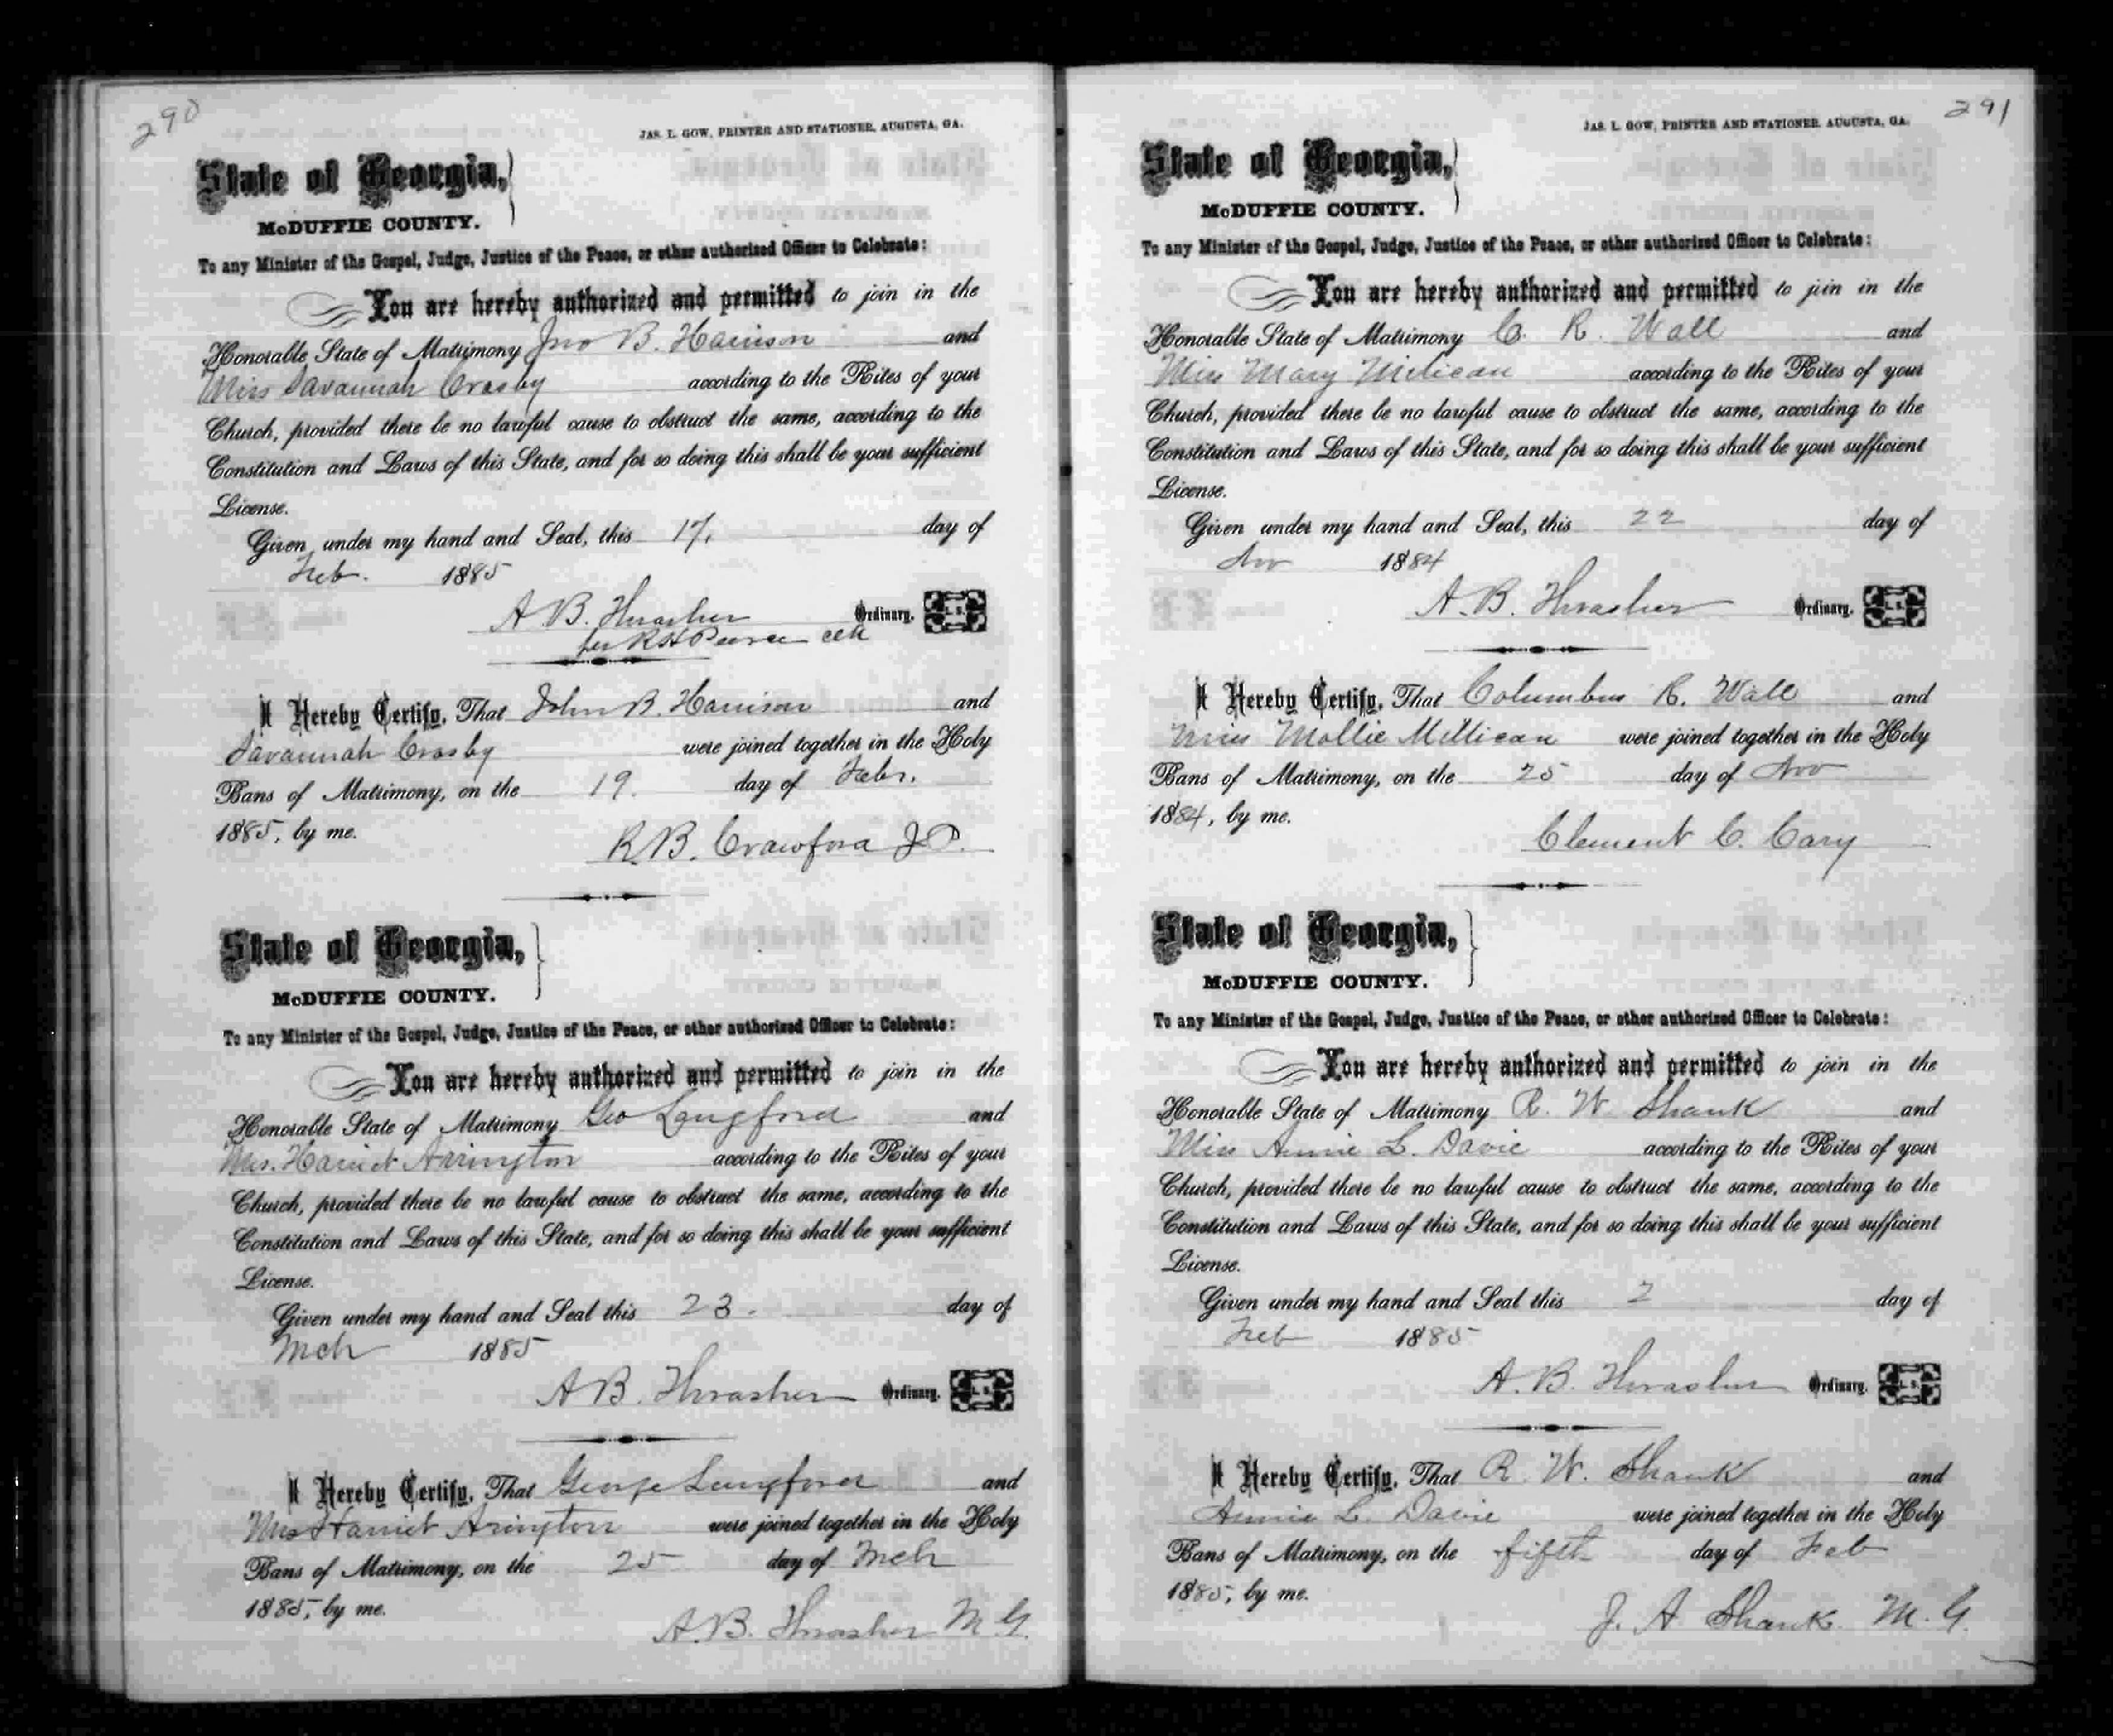 290
JAS. L. GOW, PRINTER AND STATIONER, AUGUSTA, GA.
State of Georgia,
McDUFFIE COUNTY.
To any Minister of the Gospel, Judge, Justice of the Peace, or other authorized Officer to Celebrate:
You are hereby authorized and permitted to join in the
Honorable State of Matrimony Jno B. Harrison and
Miss Savannah Crosby according to the Rites of your
Church, provided there be no lawful cause to obstruct the same, according to the
Constitution and Laws of this State, and for so doing this shall be your sufficient
License.
Given under my hand and Seal, this 17. day of
Feb. 1885
A B. Thrasher Ordinary. L. S.
per R H Pearce clk
I Hereby Certify, That John B. Harrison and
Savannah Crosby were joined together in the Holy
Bans of Matrimony, on the 19. day of Febr.
1885, by me.
R. B. Crawford J. P.
State of Georgia,
McDUFFIE COUNTY.
To any Minister of the Gospel, Judge, Justice of the Peace, or other authorized Officer to Celebrate:
You are hereby authorized and permitted to join in the
Honorable State of Matrimony Geo Langford and
Mrs. Harriet Arrington according to the Rites of your
Church, provided there be no lawful cause to obstruct the same, according to the
Constitution and Laws of this State, and for so doing this shall be your sufficient
License.
Given under my hand and Seal this 23. day of
Mch 1885
A B. Thrasher Ordinary. L. S.
I Hereby Certify, That George Langford and
Mrs Harriet Arington were joined together in the Holy
Bans of Matrimony, on the 25 day of Mch
1885, by me.
A. B. Thrasher M. G.
291
JAS. L. GOW, PRINTER AND STATIONER, AUGUSTA, GA.
State of Georgia,
McDUFFIE COUNTY.
To any Minister of the Gospel, Judge, Justice of the Peace, or other authorized Officer to Celebrate:
You are hereby authorized and permitted to join in the
Honorable State of Matrimony C. R. Wall and
Miss Mary Milican according to the Rites of your
Church, provided there be no lawful cause to obstruct the same, according to the
Constitution and Laws of this State, and for so doing this shall be your sufficient
License.
Given under my hand and Seal, this 22 day of
Nov 1884
A. B. Thrasher Ordinary. L. S.
I Hereby Certify, That Columbus R. Wall and
Miss Mollie Millican were joined together in the Holy
Bans of Matrimony, on the 25 day of Nov
1884, by me.
Clement C. Cary
State of Georgia,
McDUFFIE COUNTY.
To any Minister of the Gospel, Judge, Justice of the Peace, or other authorized Officer to Celebrate:
You are hereby authorized and permitted to join in the
Honorable State of Matrimony R. W. Shank and
Miss Annie L. Davie according to the Rites of your
Church, provided there be no lawful cause to obstruct the same, according to the
Constitution and Laws of this State, and for so doing this shall be your sufficient
License.
Given under my hand and Seal this 2 day of
Feb 1885
A. B. Thrasher Ordinary. L. S.
I Hereby Certify, That R. W. Shank and
Annie L. Davie were joined together in the Holy
Bans of Matrimony, on the fifth day of Feb
1885, by me.
J. A Shank M. G.